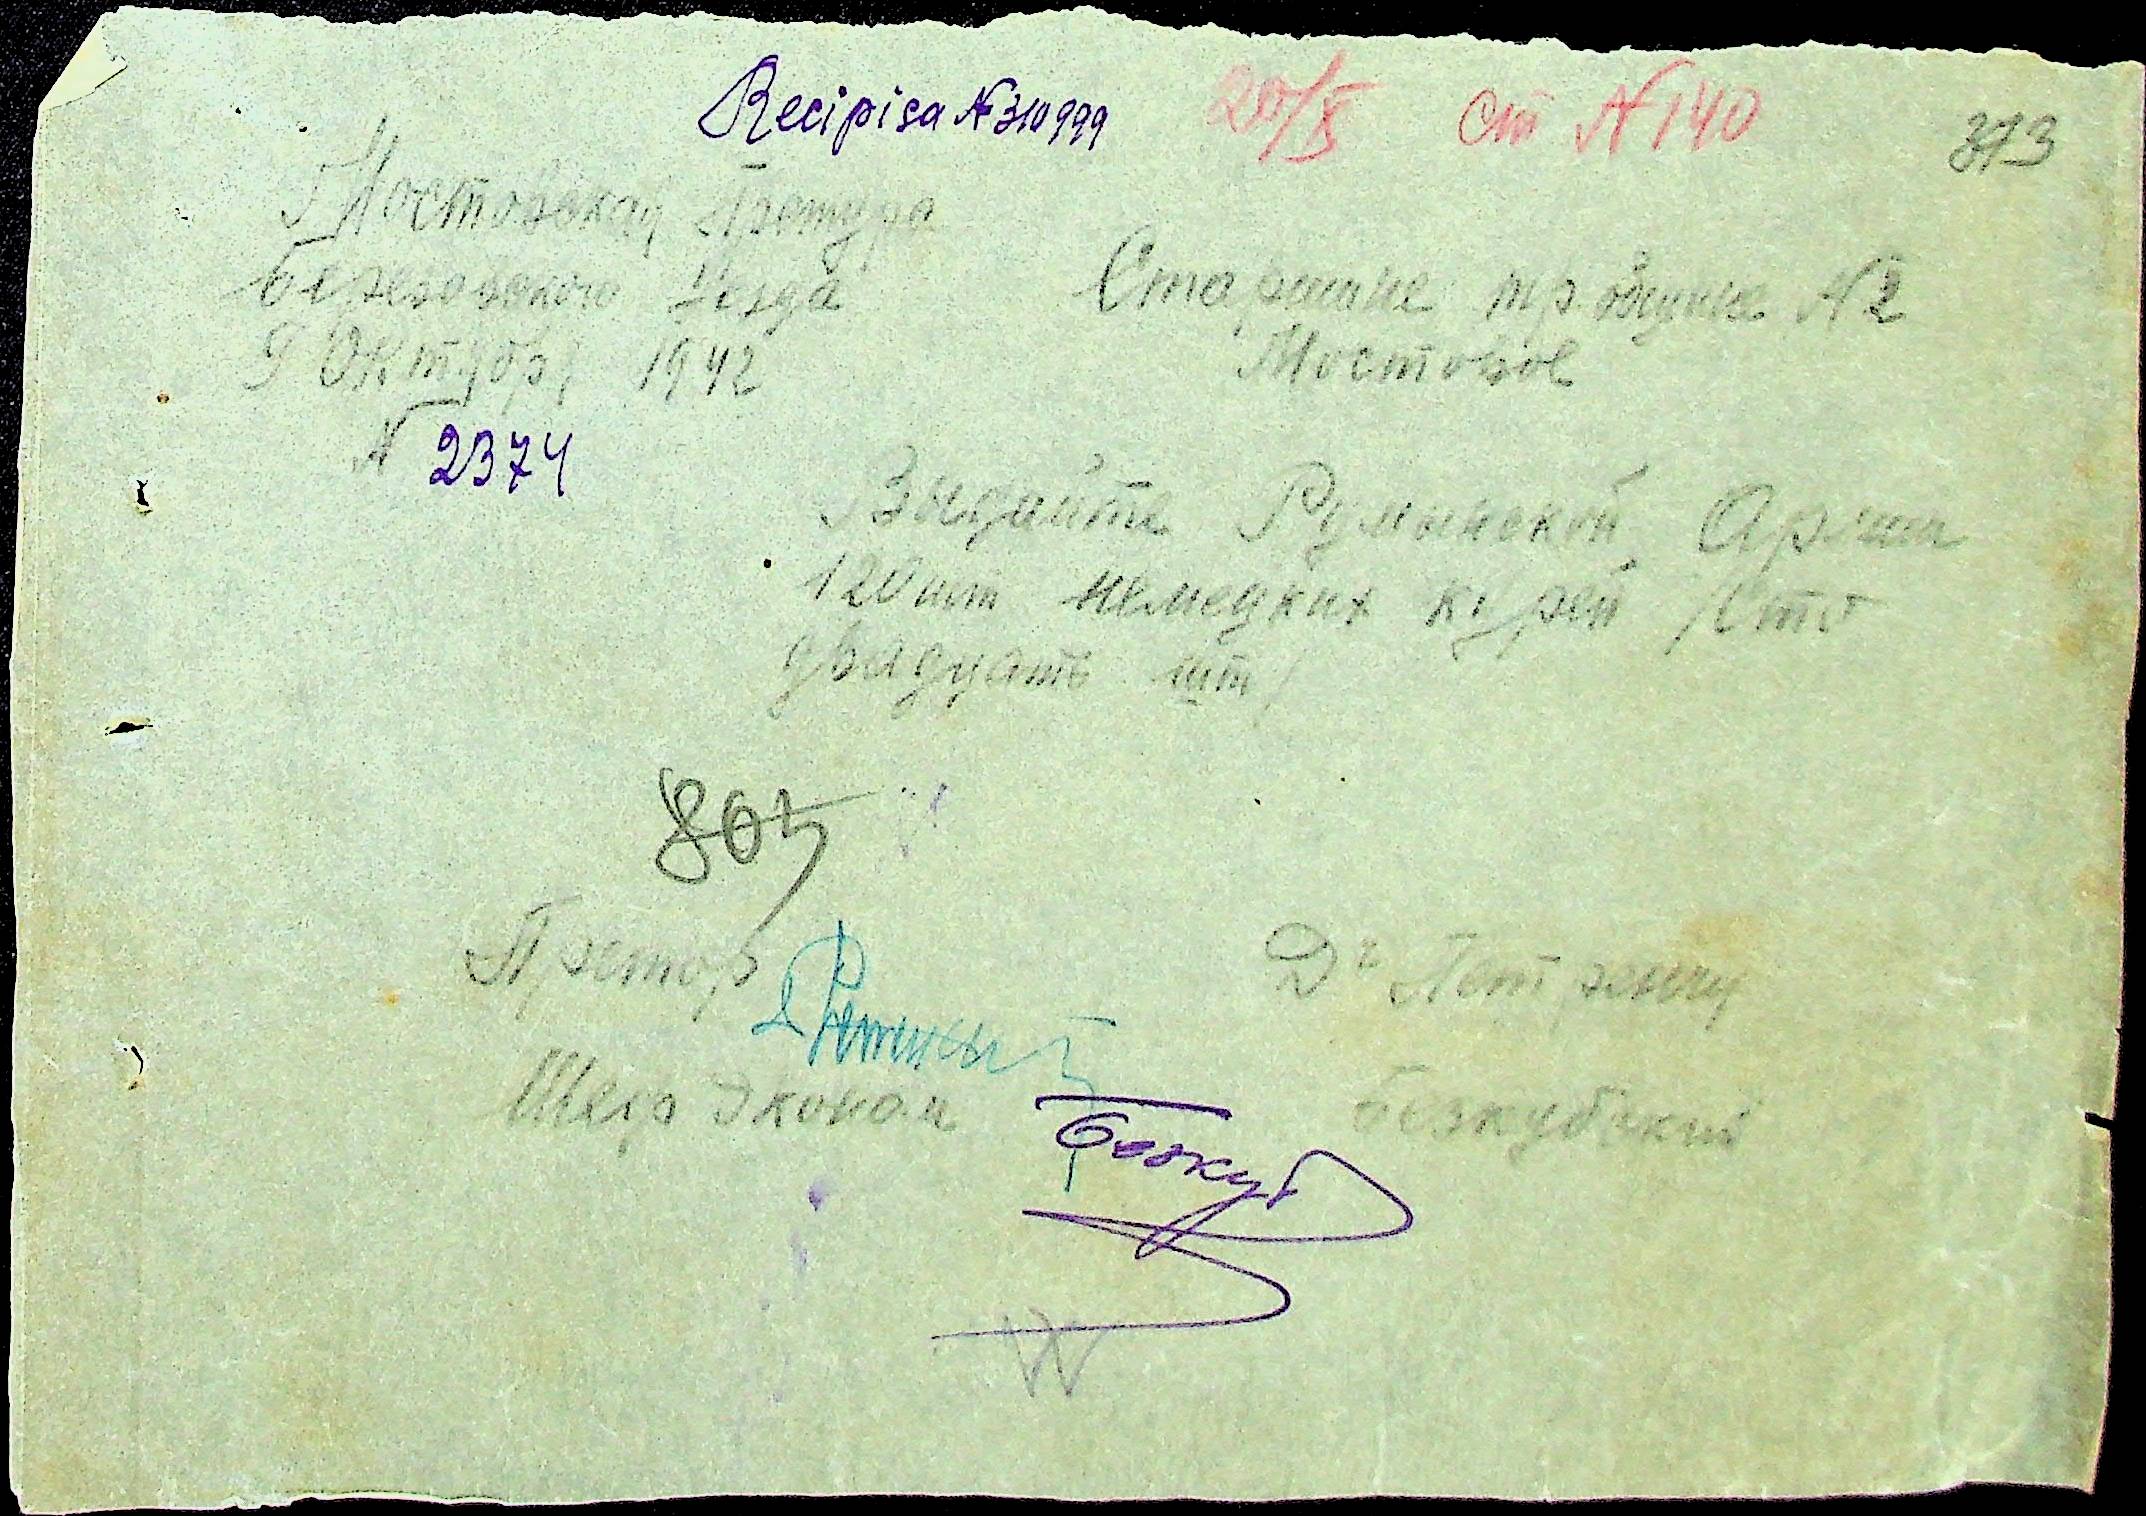 Recipisa № 310999 20/X ст № 140 373
Мостовская Претура
Березовского Уезда
9 Октября 1942
№ 2374
Старшине тр общине № 2
Мостовое
Выдайте Румынской Армии
120 шт немецких курей /Сто
двадцать шт/
Претор Дr Петрашу
Шеф Эконом Безкубский
Безкуб